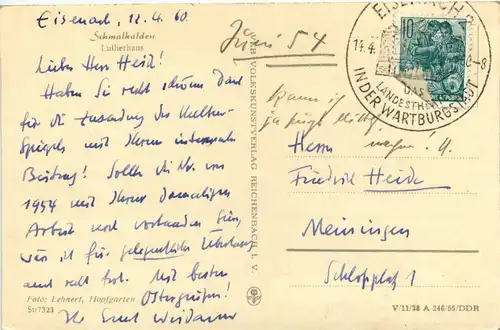 Eisenach, 12.4.60.
Schmalkalden
Lutherhaus
Lieber Herr Heid!
Haben Sie recht schönen Dank
für die Zusendung des Kultur-
Spiegels mit Ihrem interessanten
Beitrag! Sollte die Nr. von
1954 mit Ihrer damaligen
Arbeit noch vorhanden sein,
wär ich für gelegentliche
sehr Mit besten
Ostergrüßen!
Ihr Ernst
Foto: Lehnert, Hopfgarten
Str7323
VOLKSKUNSTVERLAG REICHENBACH I. V.
Juni 54
EISENACH
14.4. -8
DAS
LANDESTHEATER
IN DER WARTBURGSTADT
10
Kann ich
ja
machen.
Herrn
Friedrich Heide
Meiningen
Schloßplatz 1
V/11/28 A 246/55/DDR